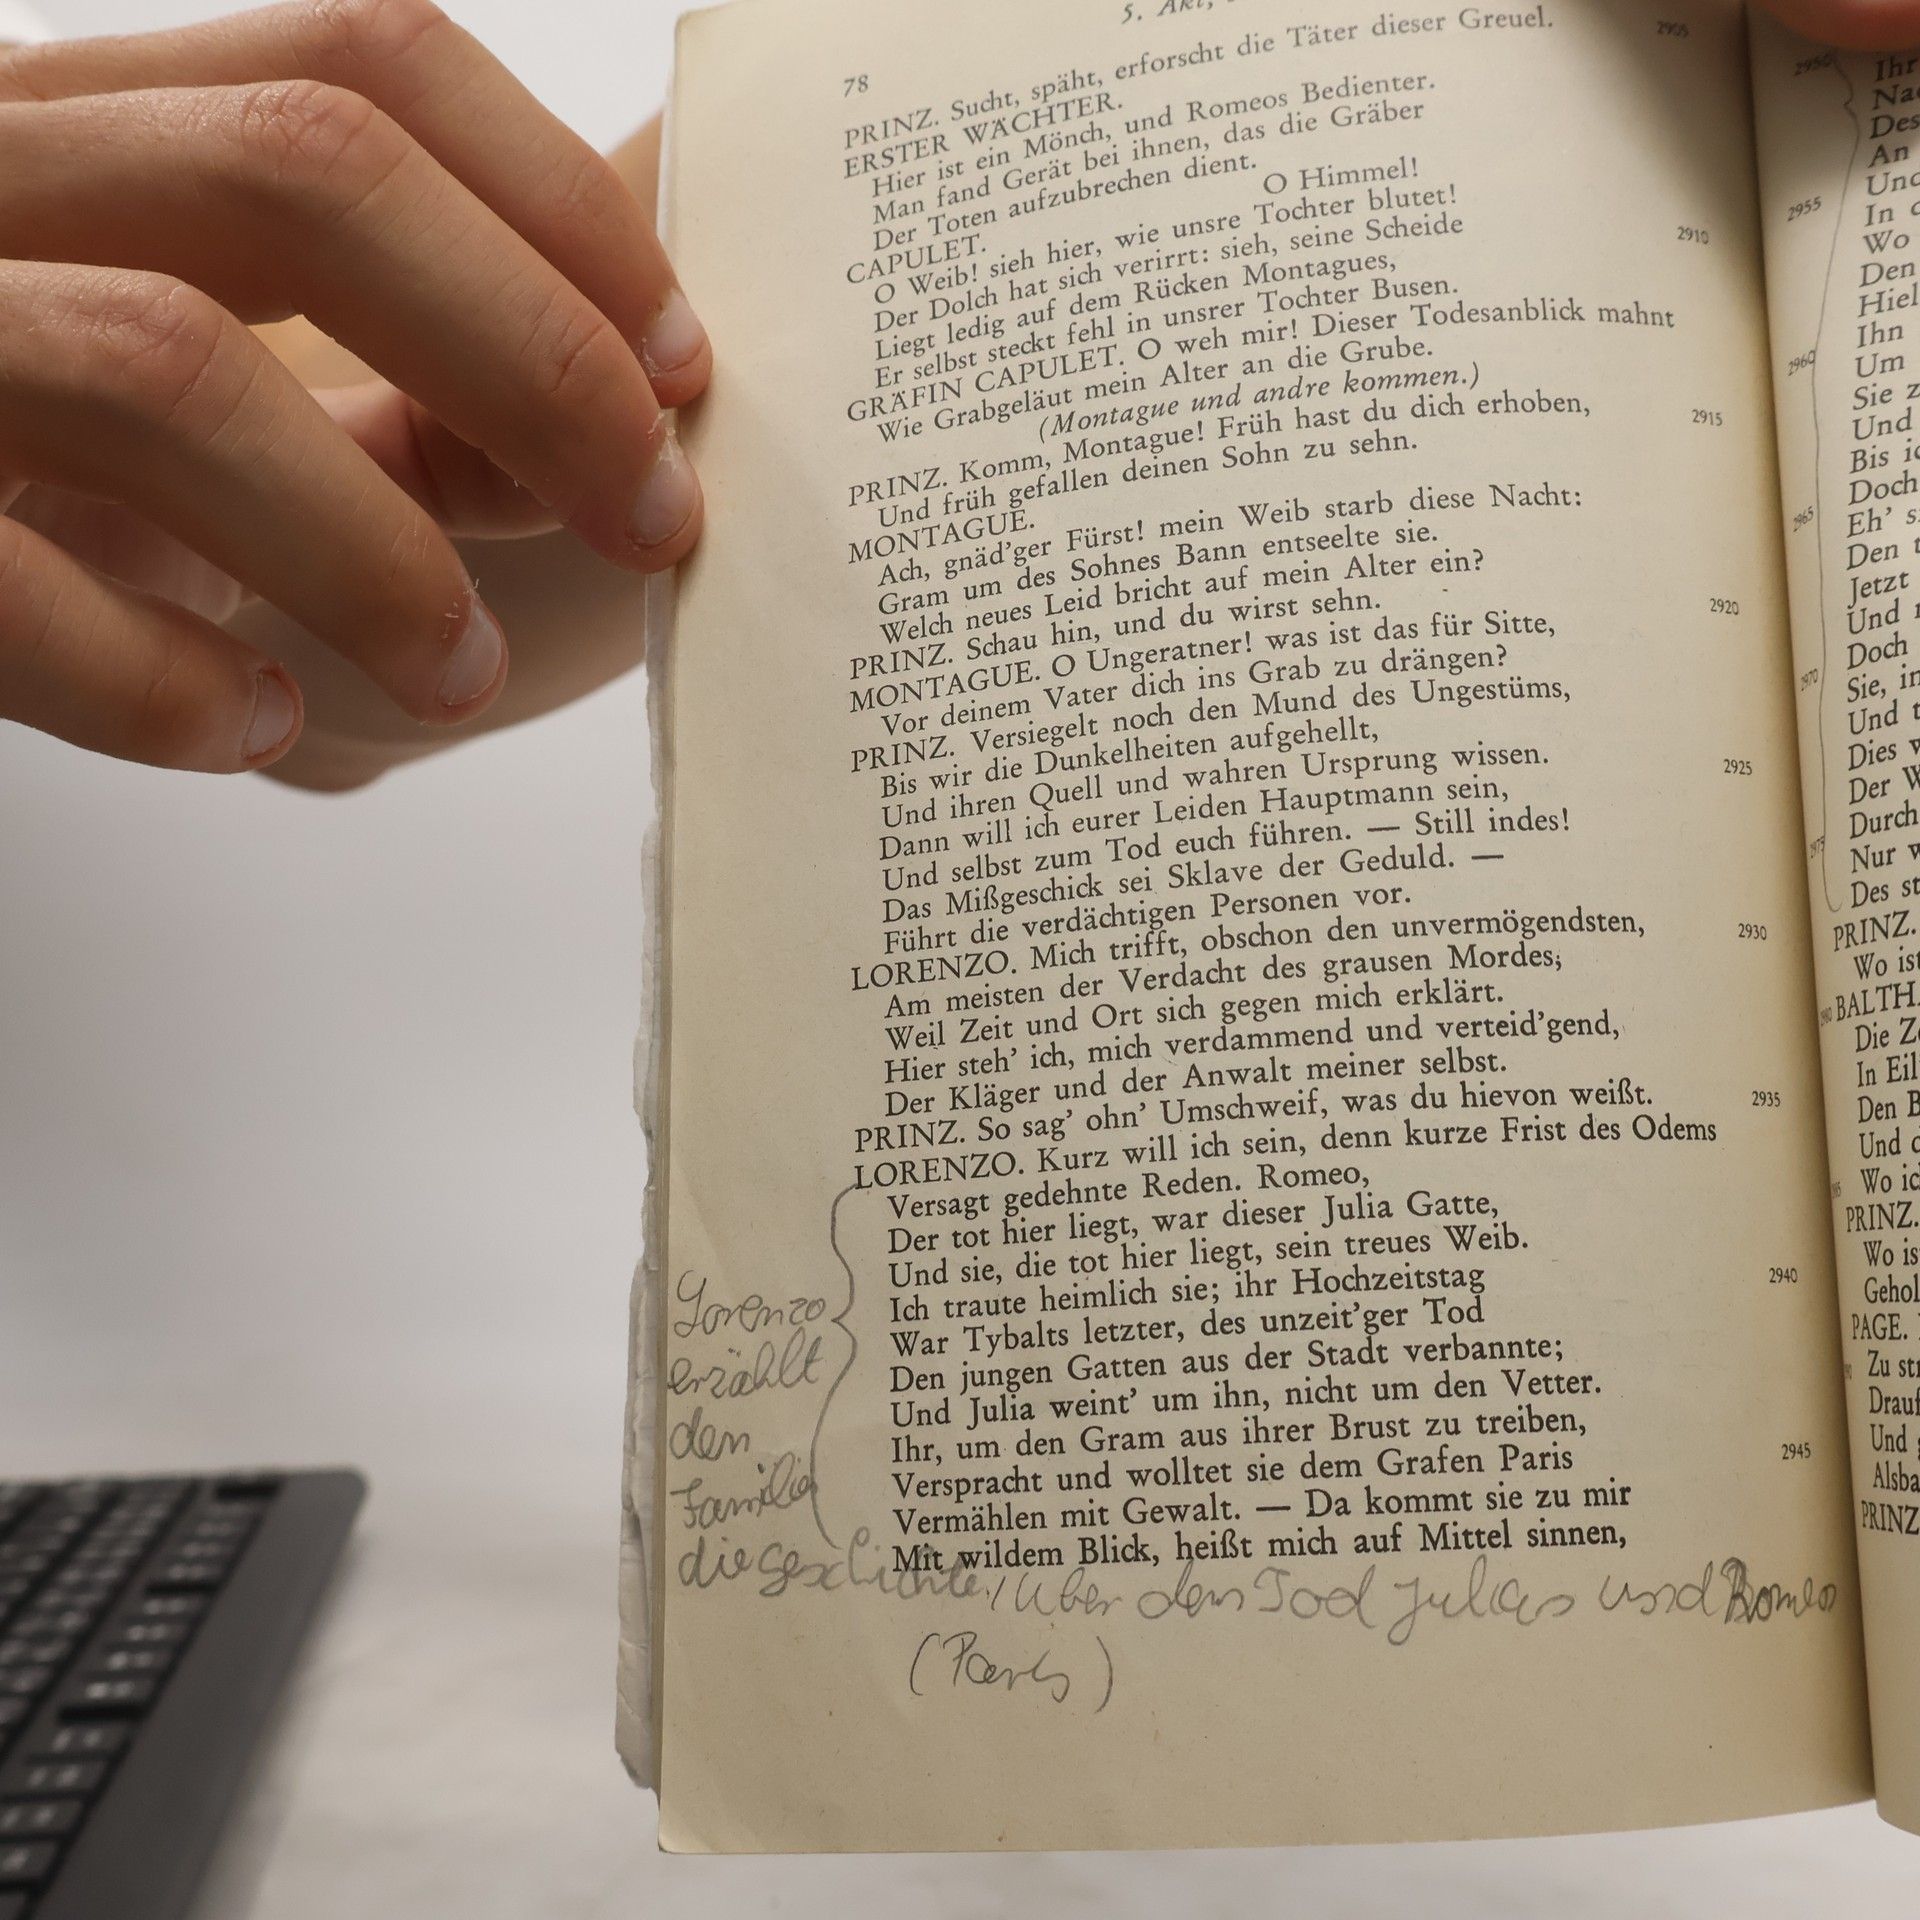 78
5. Akt,
PRINZ. Sucht, späht, erforscht die Täter dieser Greuel.
2905
ERSTER WÄCHTER.
Hier ist ein Mönch, und Romeos Bedienter.
Man fand Gerät bei ihnen, das die Gräber
Der Toten aufzubrechen dient.
CAPULET. O Himmel!
O Weib! sieh hier, wie unsre Tochter blutet!
Der Dolch hat sich verirrt: sieh, seine Scheide
2910
Liegt ledig auf dem Rücken Montagues,
Er selbst steckt fehl in unsrer Tochter Busen.
GRÄFIN CAPULET. O weh mir! Dieser Todesanblick mahnt
Wie Grabgeläut mein Alter an die Grube.
(Montague und andre kommen.)
PRINZ. Komm, Montague! Früh hast du dich erhoben,
2915
Und früh gefallen deinen Sohn zu sehn.
MONTAGUE.
Ach, gnäd'ger Fürst! mein Weib starb diese Nacht:
Gram um des Sohnes Bann entseelte sie.
Welch neues Leid bricht auf mein Alter ein?
PRINZ. Schau hin, und du wirst sehn.
2920
MONTAGUE. O Ungeratner! was ist das für Sitte,
Vor deinem Vater dich ins Grab zu drängen?
PRINZ. Versiegelt noch den Mund des Ungestüms,
Bis wir die Dunkelheiten aufgehellt,
Und ihren Quell und wahren Ursprung wissen.
2925
Dann will ich eurer Leiden Hauptmann sein,
Und selbst zum Tod euch führen. — Still indes!
Das Mißgeschick sei Sklave der Geduld. —
Führt die verdächtigen Personen vor.
LORENZO. Mich trifft, obschon den unvermögendsten,
2930
Am meisten der Verdacht des grausen Mordes;
Weil Zeit und Ort sich gegen mich erklärt.
Hier steh' ich, mich verdammend und verteid'gend,
Der Kläger und der Anwalt meiner selbst.
PRINZ. So sag' ohn' Umschweif, was du hievon weißt.
2935
LORENZO. Kurz will ich sein, denn kurze Frist des Odems
Versagt gedehnte Reden. Romeo,
Der tot hier liegt, war dieser Julia Gatte,
Und sie, die tot hier liegt, sein treues Weib.
Ich traute heimlich sie; ihr Hochzeitstag
2940
War Tybalts letzter, des unzeit'ger Tod
Den jungen Gatten aus der Stadt verbannte;
Und Julia weint' um ihn, nicht um den Vetter.
Ihr, um den Gram aus ihrer Brust zu treiben,
Verspracht und wolltet sie dem Grafen Paris
2945
Vermählen mit Gewalt. — Da kommt sie zu mir
Mit wildem Blick, heißt mich auf Mittel sinnen,
Lorenzo
erzählt
den
Familie
die Geschichte / über den Tod Julias und Romeo
(Paris)
2950
Ihr
Des
An
In
2955
Wo
Den
Ihn
2960
Um
Sie
Und
Bis
Doch
2965
Eh'
Den
Jetzt
Und
Doch
2970
Sie,
Und
Dies
Der
Durch
2975
Nur
Des
PRINZ.
Wo ist
2980
Die
In
Den
Und
Wo
PRINZ.
Wo
PAGE.
Zu
Und
PRINZ